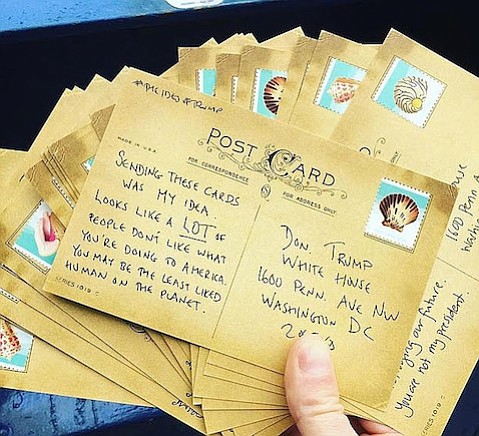 #THEIDESOFTRUMP
MADE IN U.S.A.
POST CARD
FOR CORRESPONDENCE
FOR ADDRESS ONLY
SENDING THESE CARDS
WAS MY IDEA.
LOOKS LIKE A LOT OF
PEOPLE DON'T LIKE WHAT
YOU'RE DOING TO AMERICA.
YOU MAY BE THE LEAST LIKED
HUMAN ON THE PLANET.
SERIES 1019 C
DON. TRUMP
WHITE HOUSE
1600 PENN. AVE NW
WASHINGTON DC
1600 Penn
our future.
you are not my president.
SERIES 1019 C